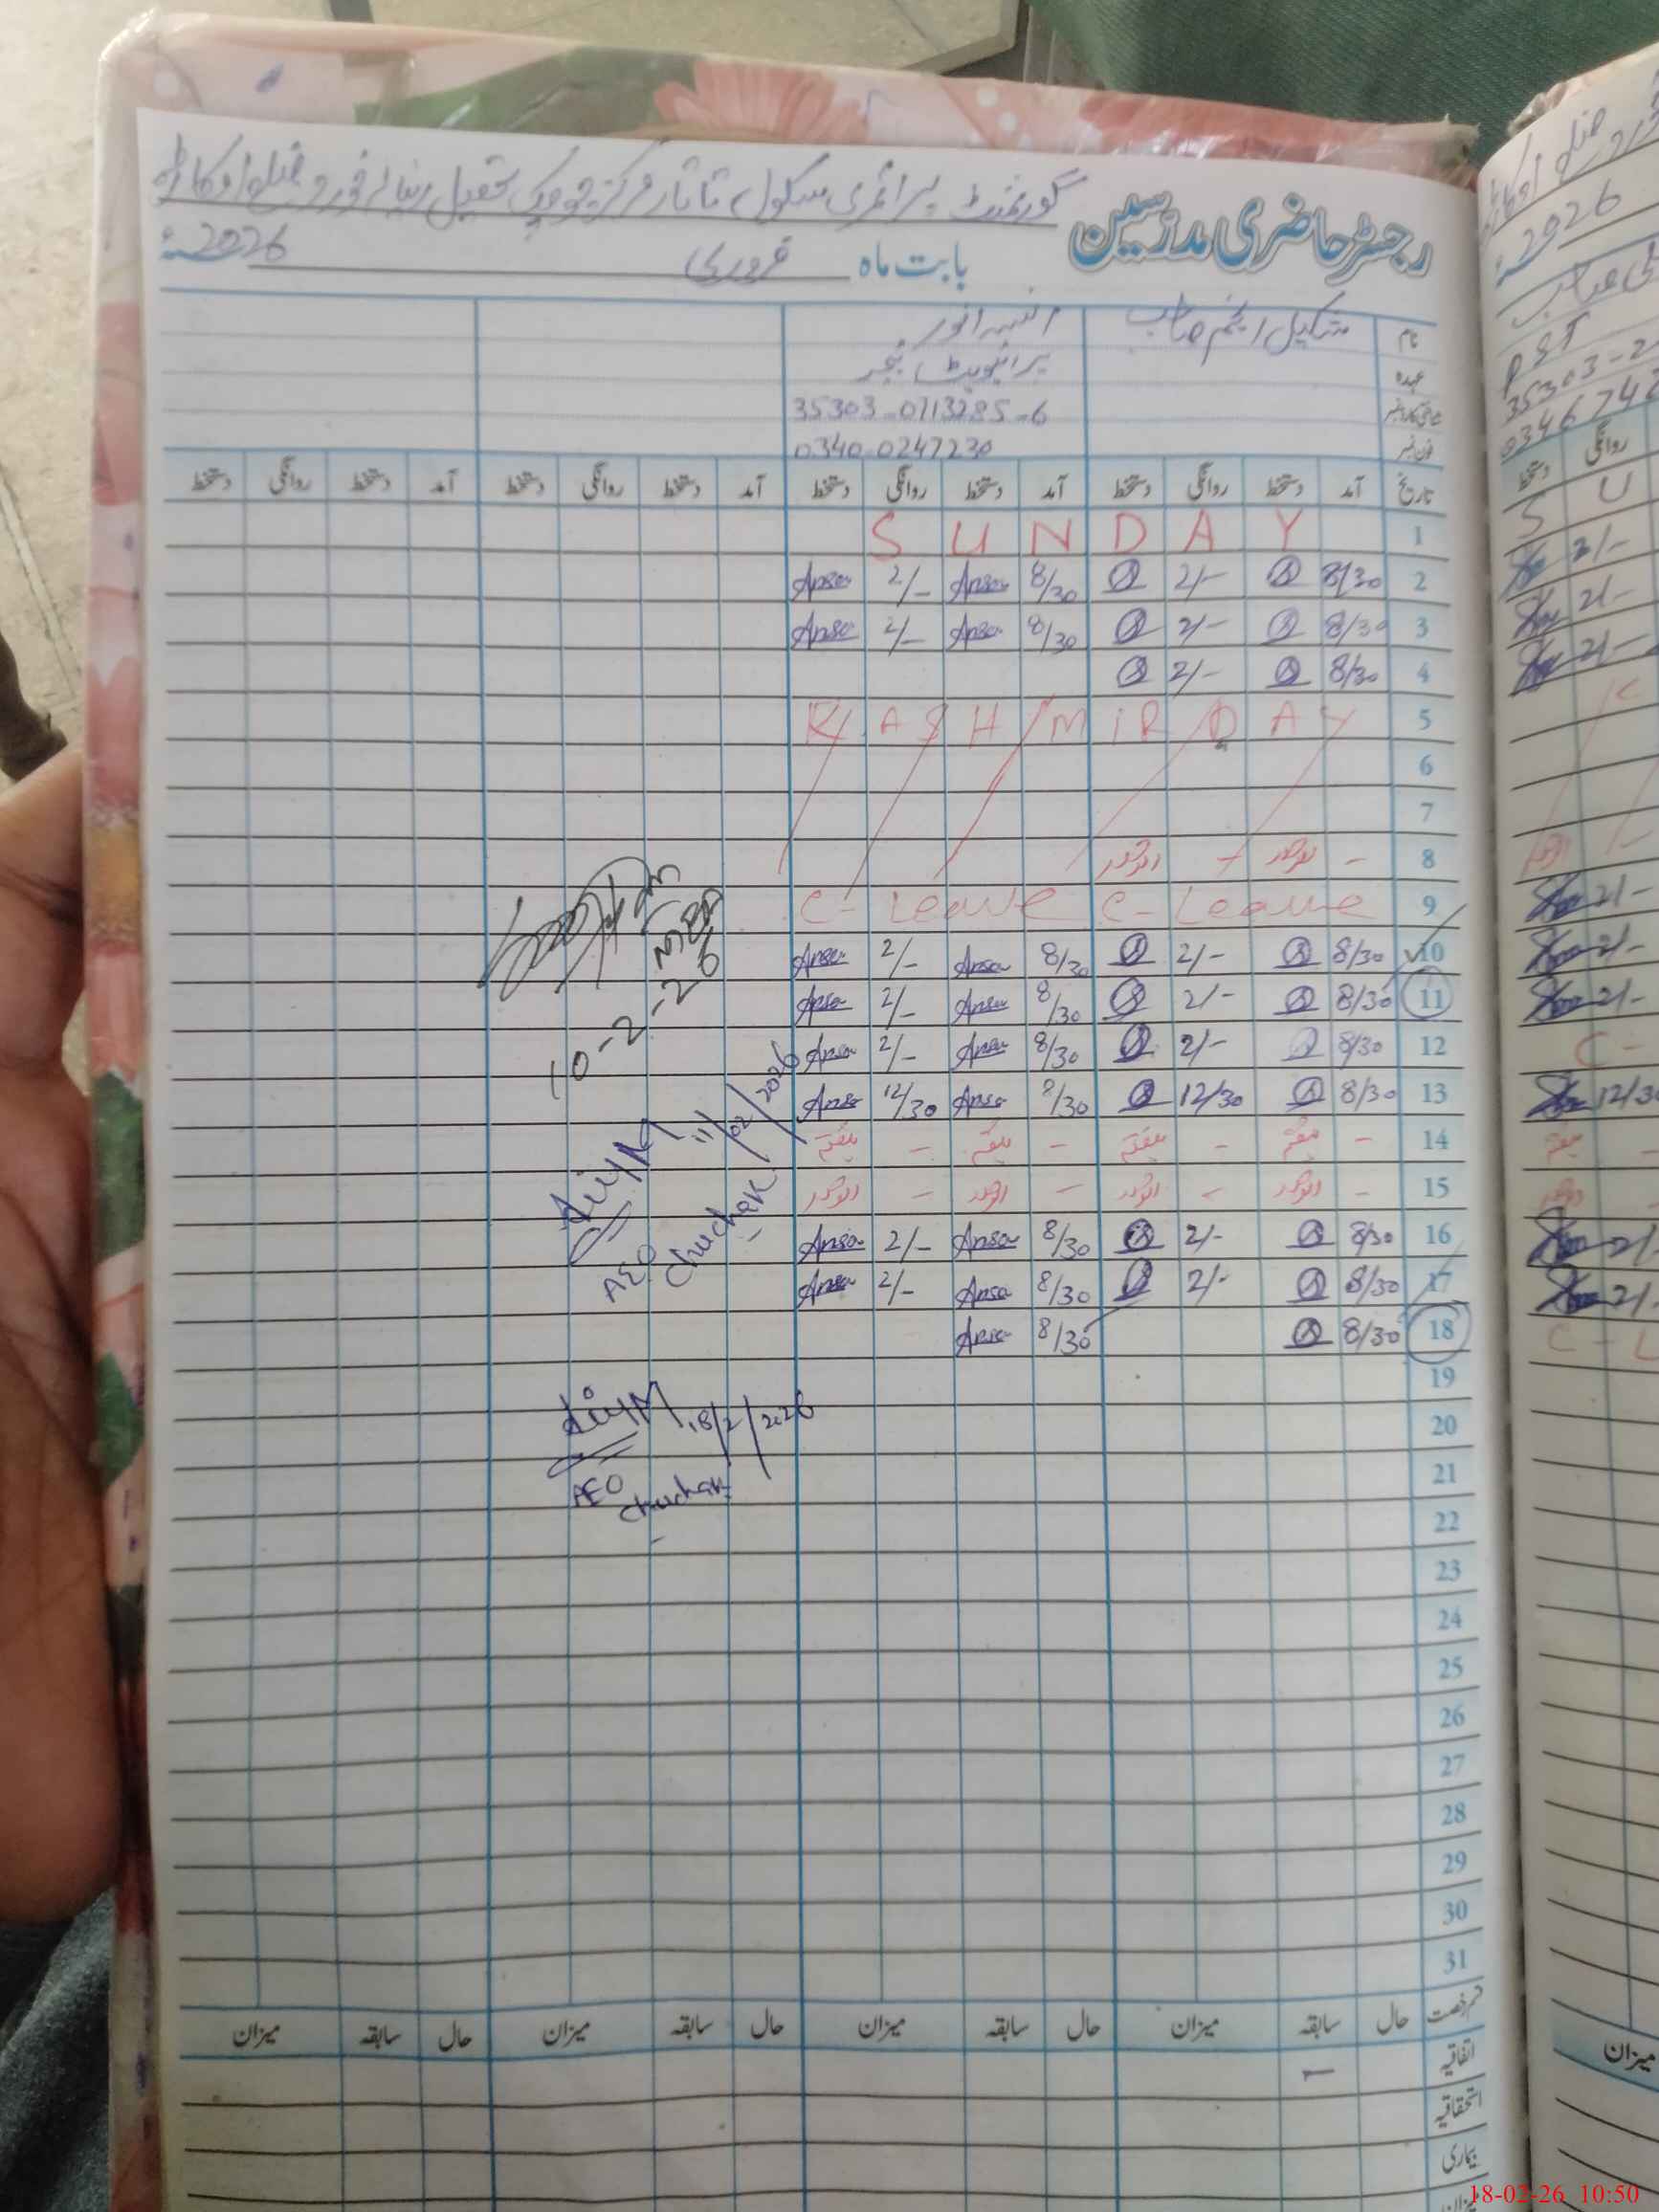 رجسٹر حاضری مدرسین گورنمنٹ پرائمری سکول تاتار مرکز چوچک تحصیل رینالہ خورد ضلع اوکاڑہ
بابت ماہ فروری 2026ء
نام شکیل انجم صاحب
عہدہ پرائیویٹ ٹیچر
شناختی کارڈ نمبر 35303-0713285-6
فون نمبر 0340-0247230
تاریخ آمد دستخط روانگی دستخط آمد دستخط روانگی دستخط آمد دستخط روانگی دستخط آمد دستخط روانگی دستخط
1 SUNDAY
2 8/30 2/- 8/30 Ansa 2/- Ansa
3 8/30 2/- 8/30 Ansa 2/- Ansa
4 8/30 2/-
5 KASHMIR DAY
6
7
8 - اتوار - اتوار
9 C-Leave C-Leave
10 8/30 2/- 8/30 Ansa 2/- Ansa
11 8/30 2/- 8/30 Ansa 2/- Ansa
12 8/30 2/- 8/30 Ansa 2/- Ansa
13 8/30 12/30 8/30 Ansa 12/30 Ansa
14 - ہفتہ - ہفتہ - ہفتہ - ہفتہ
15 - اتوار - اتوار - اتوار - اتوار
16 8/30 2/- 8/30 Ansa 2/- Ansa
17 8/30 2/- 8/30 Ansa 2/- Ansa
18 8/30 8/30 Ansa
19
20
21
22
23
24
25
26
27
28
29
30
31
10-2-26
11/02/2026
AEO
Chuchak
18/2/2026
AEO
Chuchak
قسم رخصت حال سابقہ میزان حال سابقہ میزان حال سابقہ میزان حال سابقہ میزان
اتفاقیہ
استحقاقیہ
بیماری
میزان
2026
PST
35303-2
0346742
روانگی دستخط
S U
2/-
2/-
2/-
2/-
2/-
2/-
C-
12/30
2/-
2/-
C-L
میزان
18-02-26 10:50